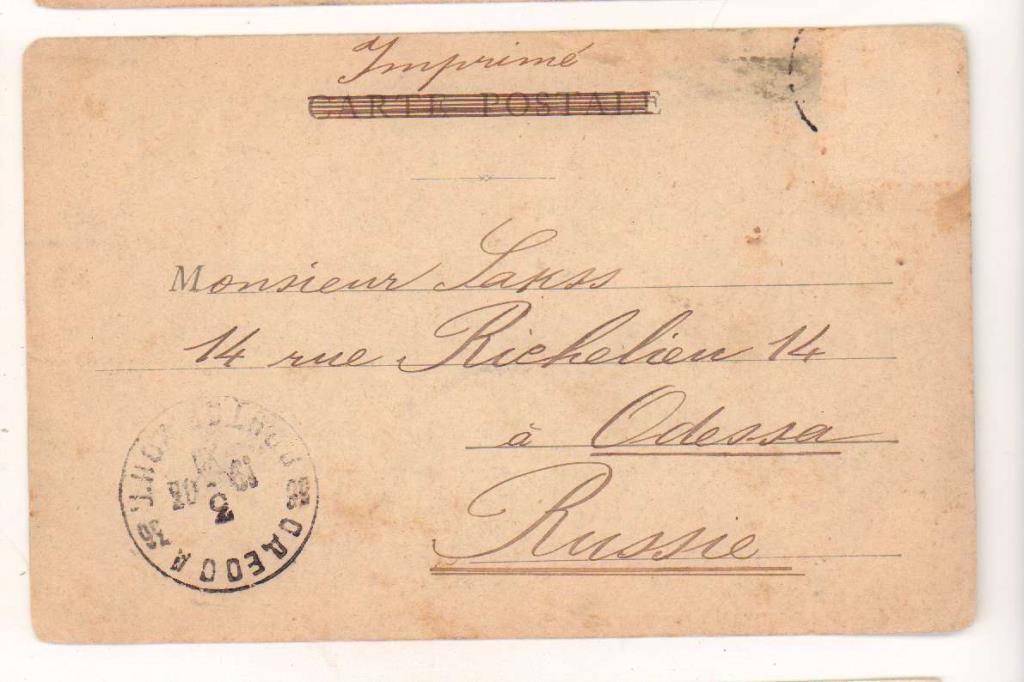 Imprimé
CARTE POSTALE
Monsieur Sakss
14 rue Richelieu 14
à Odessa
Russie
ОДЕССА